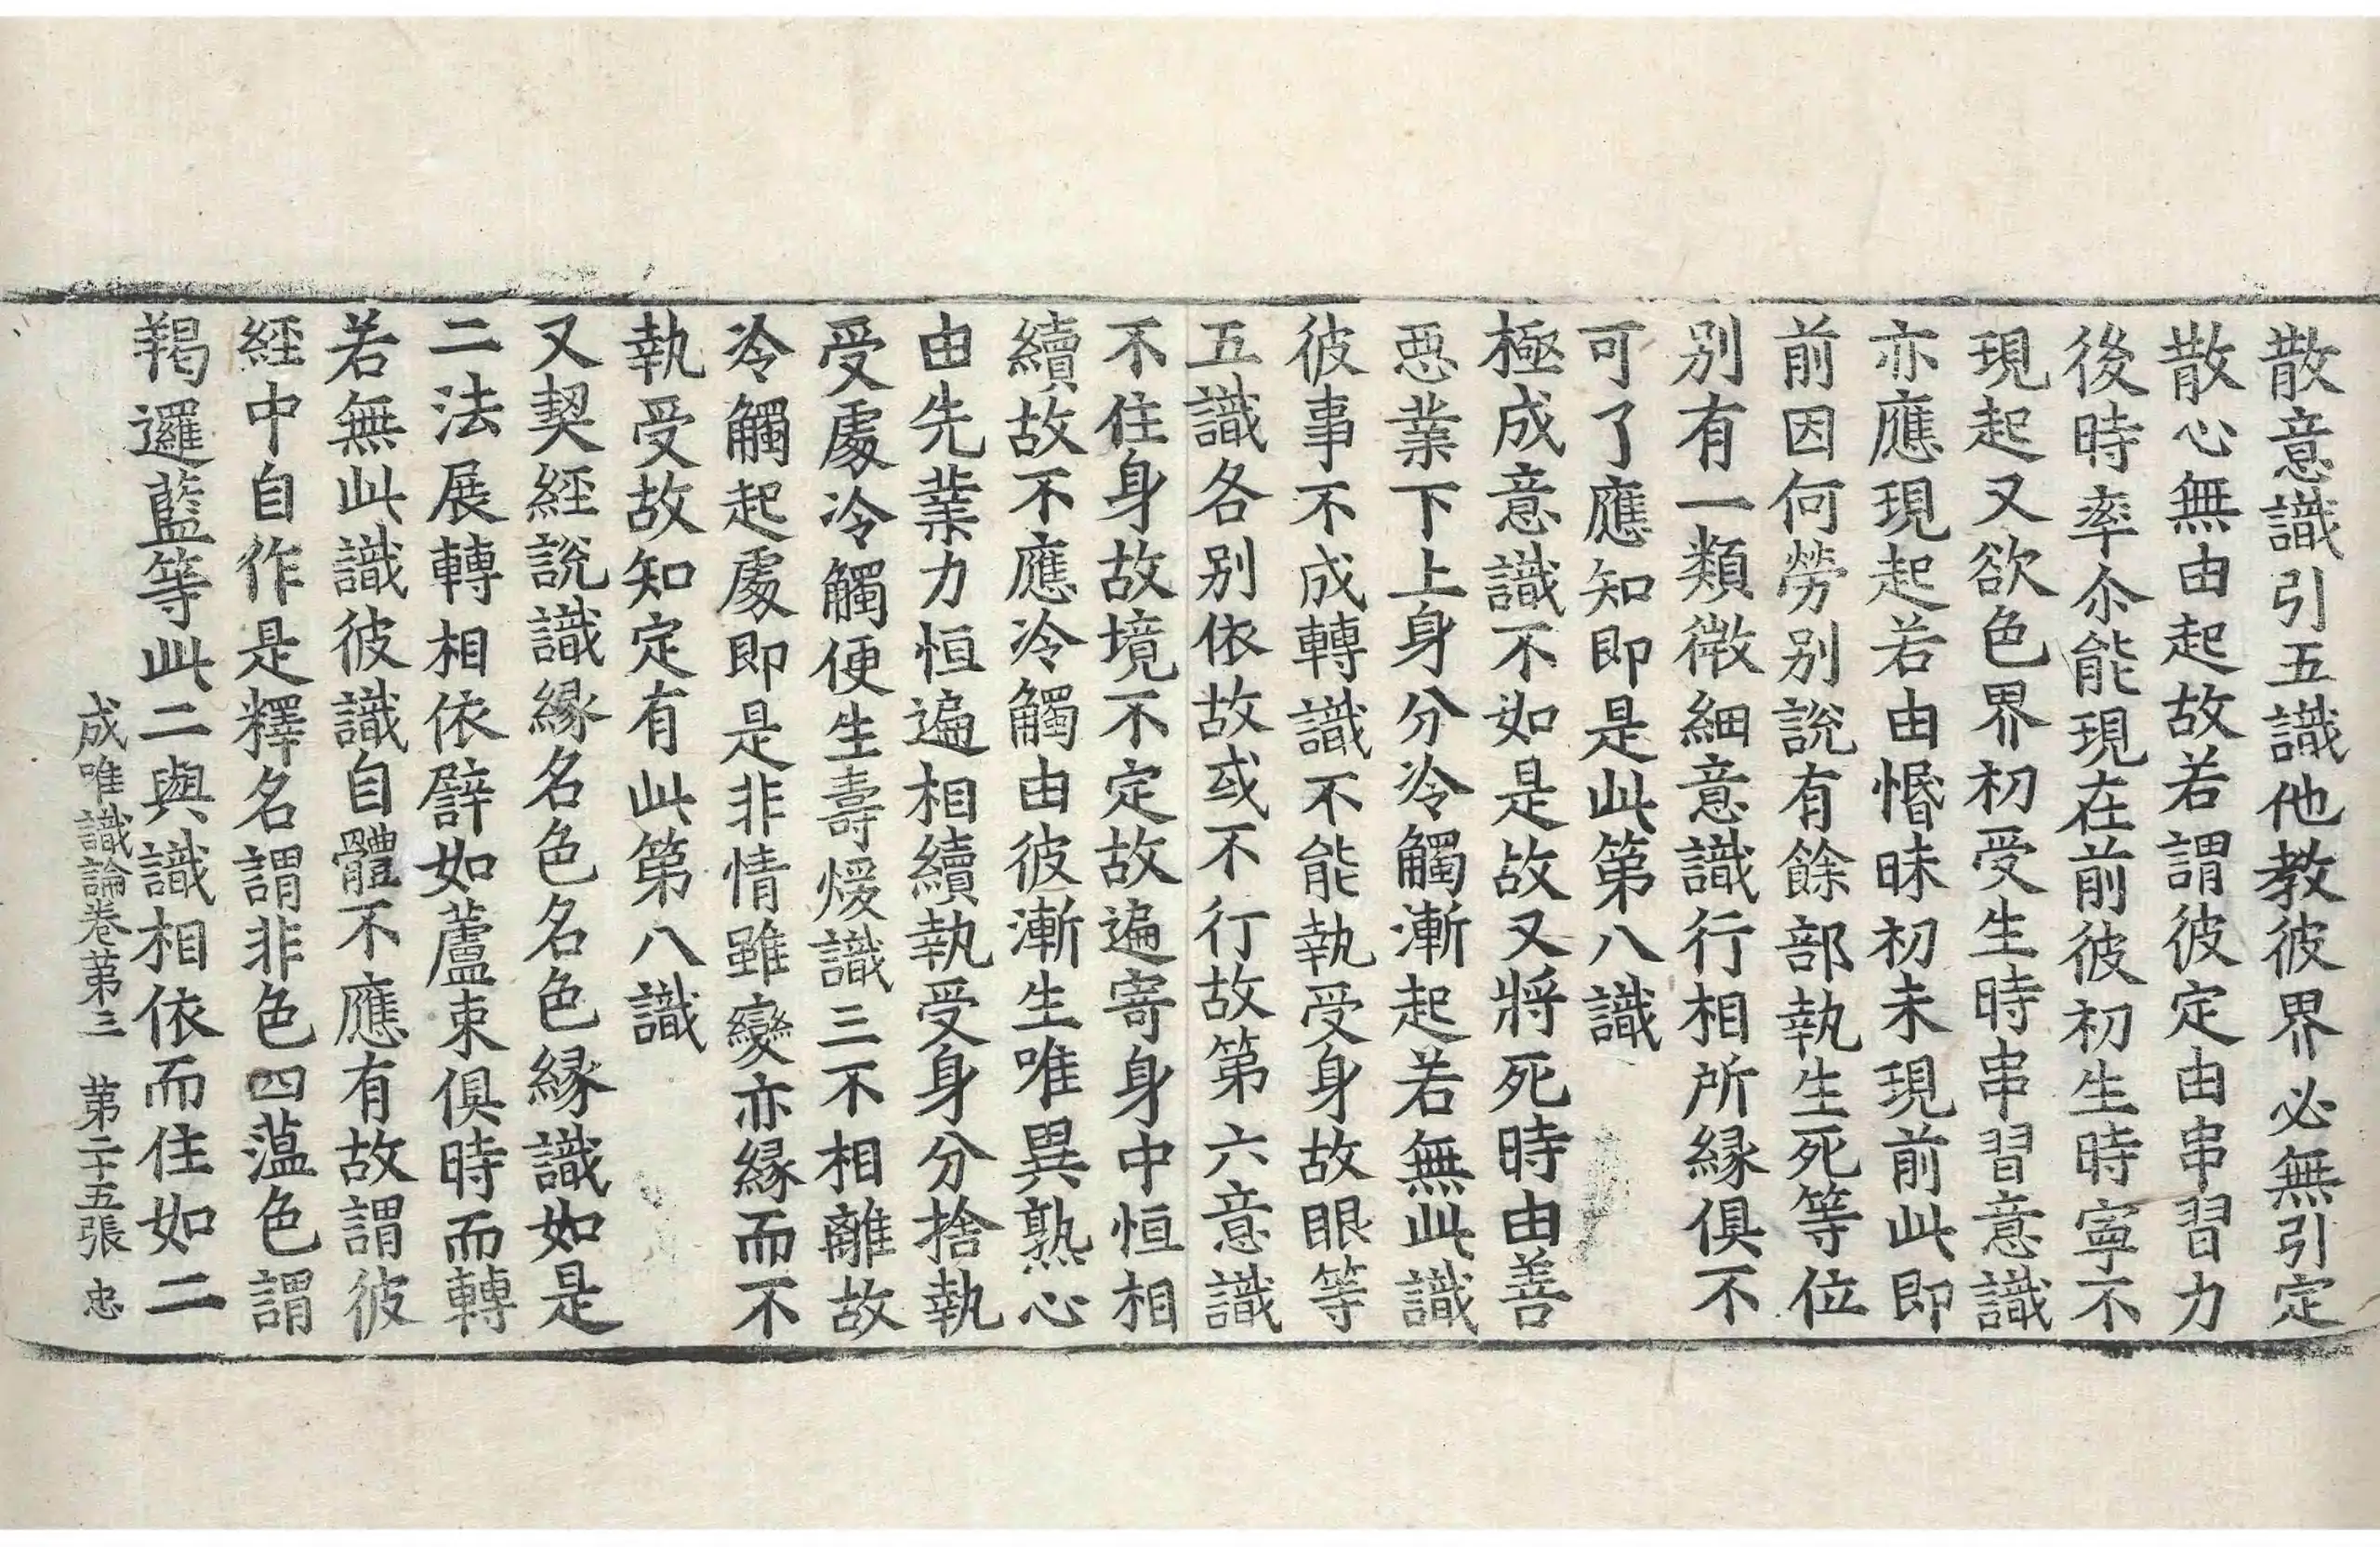 散意識引五識他教彼界必無引定
散心無由起故若謂彼定由串習力
後時率尒能現在前彼初生時寧不
現起又欲色界初受生時串習意識
亦應現起若由惛昧初未現前此即
前因何勞別說有餘部執生死等位
別有一類微細意識行相所緣俱不
可了應知即是此第八識
極成意識不如是故又將死時由善
惡業下上身分冷觸漸起若無此識
彼事不成轉識不能執受身故眼等
五識各別依故或不行故第六意識
不住身故境不定故遍寄身中恒相
續故不應冷觸由彼漸生唯異熟心
由先業力恒遍相續執受身分捨執
受處冷觸便生壽煖識三不相離故
冷觸起處即是非情雖變亦緣而不
執受故知定有此第八識
又契經說識緣名色名色緣識如是
二法展轉相依譬如蘆束俱時而轉
若無此識彼識自體不應有故謂彼
經中自作是釋名謂非色四薀色謂
羯邏藍等此二與識相依而住如二
成唯識論卷第三　第二十五張　忠